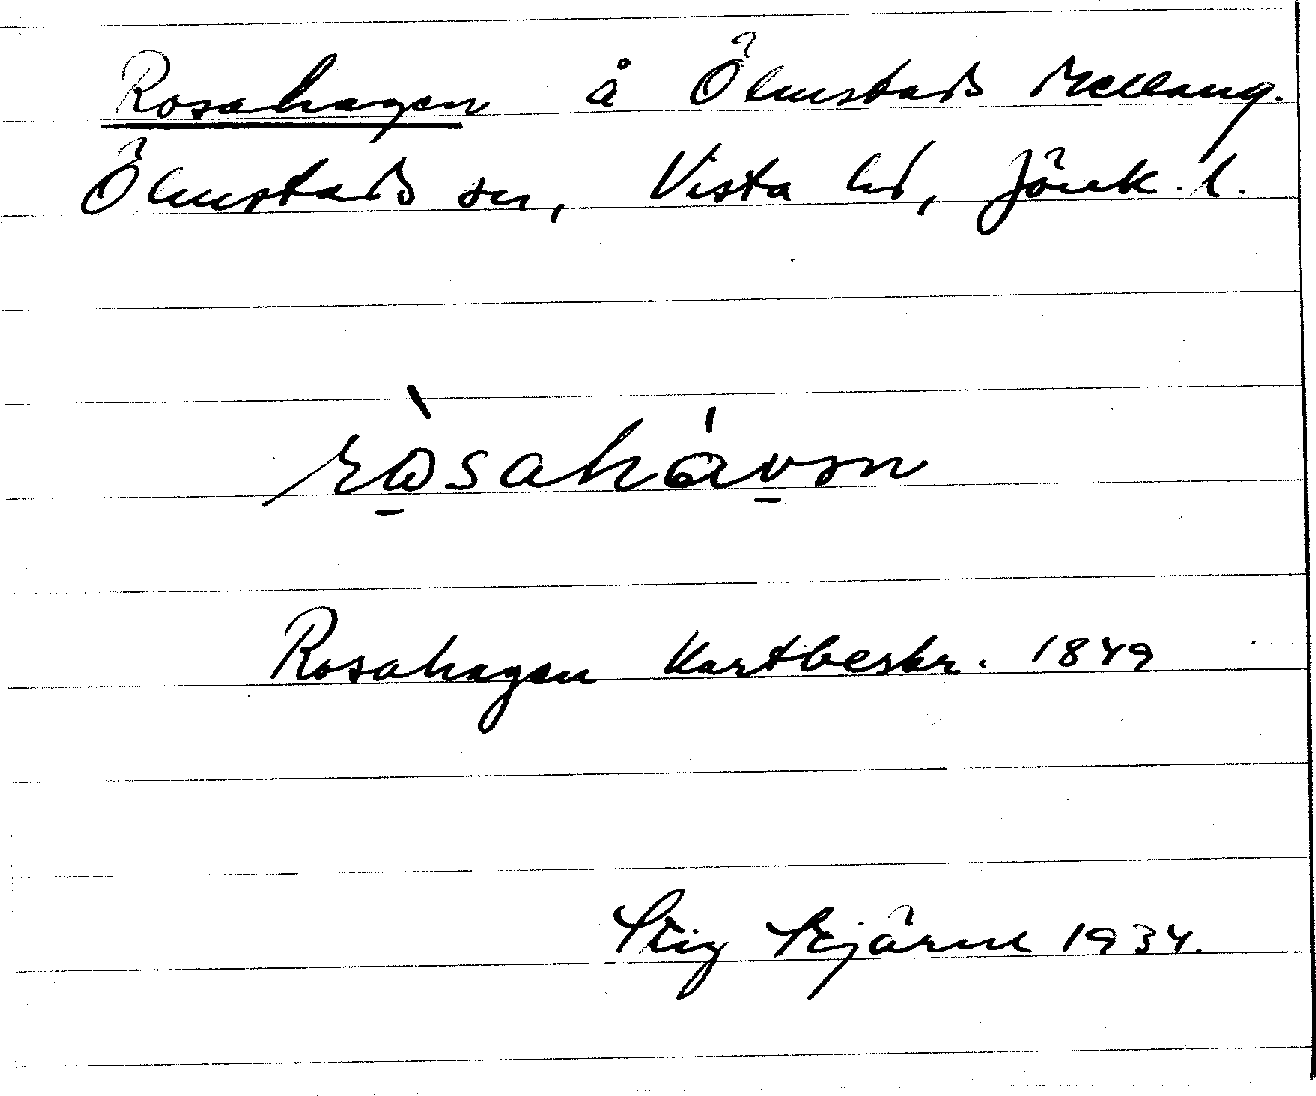 Rosahagen å Ölmstads Mellang.
Ölmstads sn, Vista hd, Jönk. l.
ròsahávən
Rosahagen Kartbeskr. 1849
Stig Stjärne 1934.